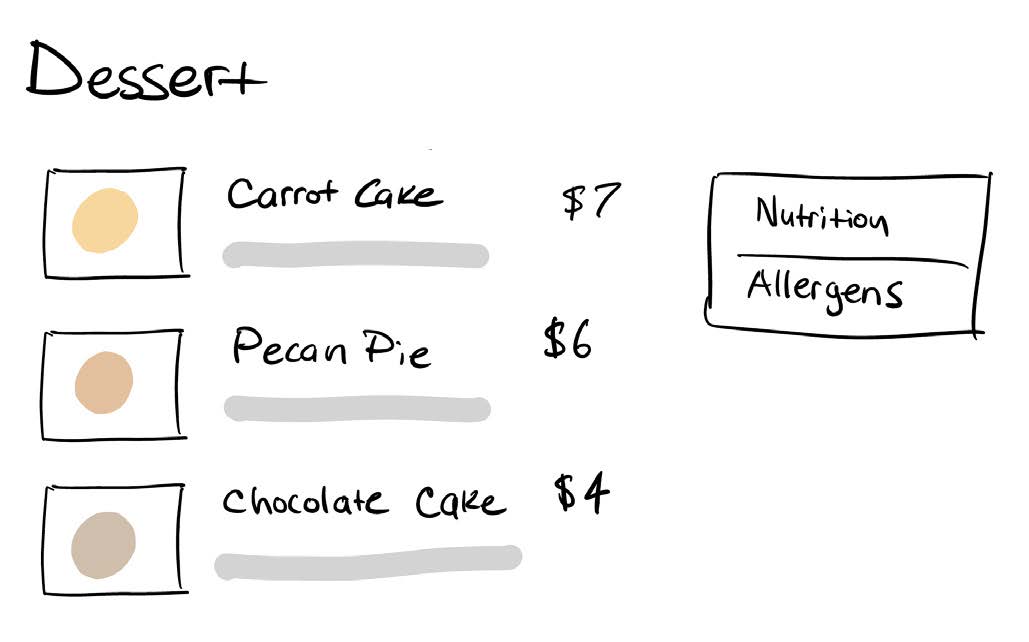 Dessert
Carrot Cake $7
Pecan Pie $6
Chocolate Cake $4
Nutrition
Allergens